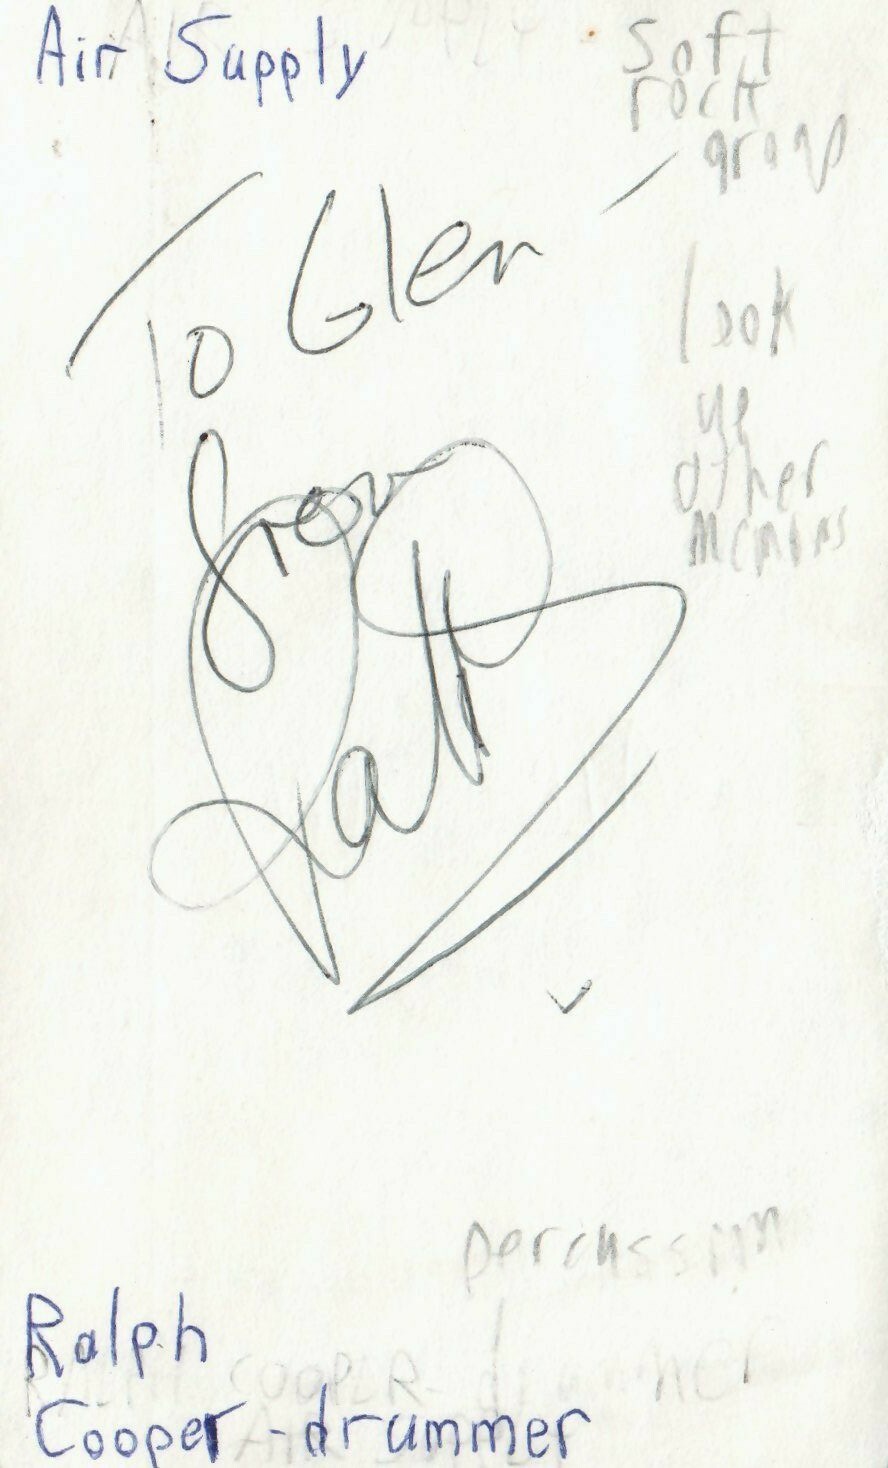 Air Supply
soft
rock
group
To Glen
look
up
other
from
Ralph
percussion
Ralph
COOPER - drummer
Cooper - drummer